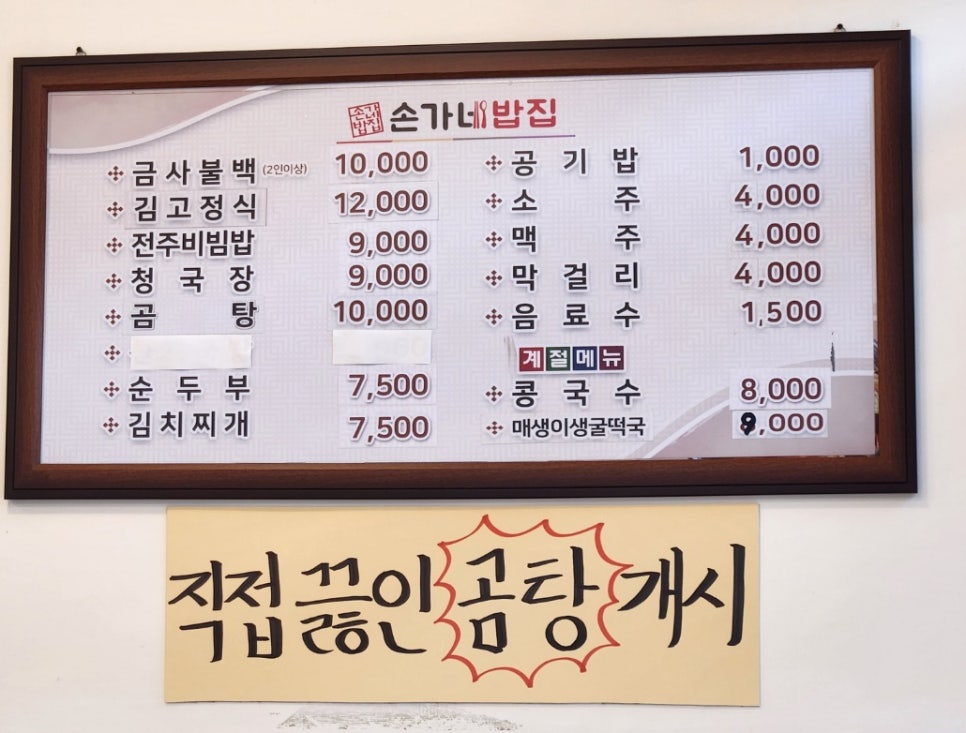 손가네밥집 손가네밥집
금사불백 (2인이상) 10,000
김고정식 12,000
전주비빔밥 9,000
청국장 9,000
곰탕 10,000
순두부 7,500
김치찌개 7,500
공기밥 1,000
소주 4,000
맥주 4,000
막걸리 4,000
음료수 1,500
계절메뉴
콩국수 8,000
매생이생굴떡국 9,000
직접 끓인 곰탕 개시